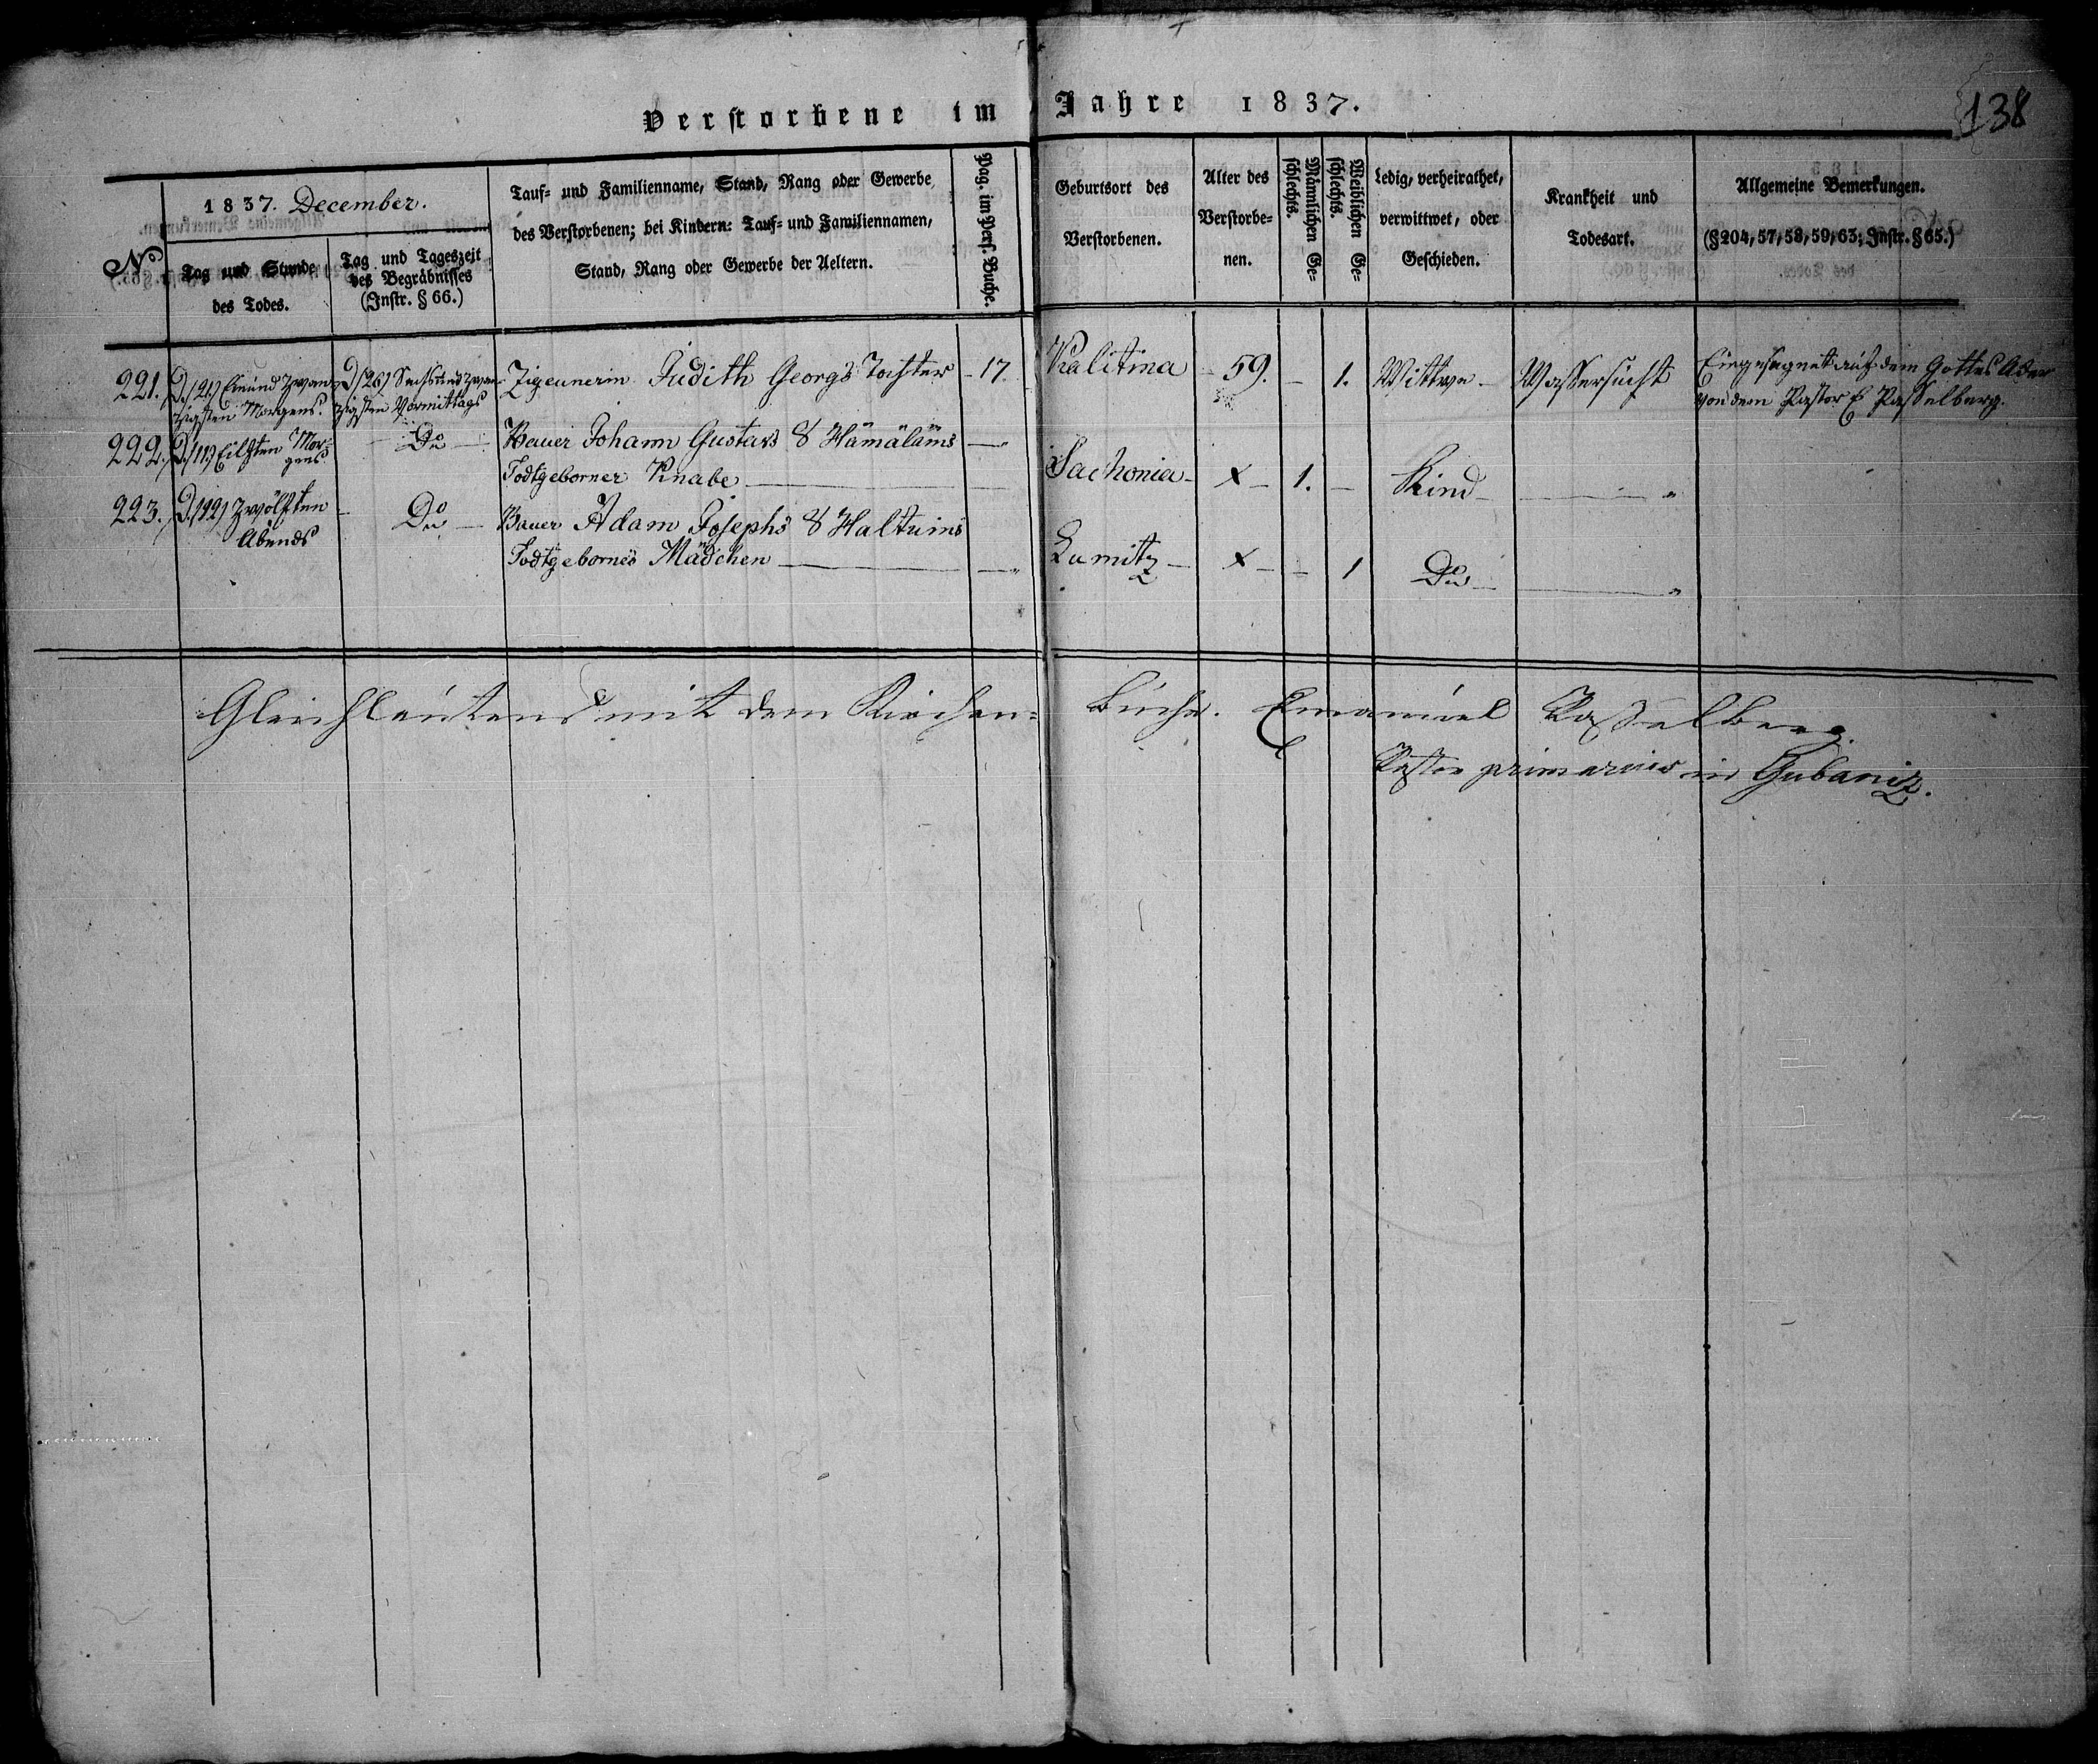 Verstorbene im Jahre 1837.
138
No
1837. December.
Tag und Stunde
des Todes.
Tag und Tageszeit
des Begräbnisses
(Instr. § 66.)
Tauf= und Familienname, Stand, Rang oder Gewerbe
des Verstorbenen; bei Kindern: Tauf= und Familiennamen,
Stand, Rang oder Gewerbe der Aeltern.
Pag. im Pers. Buche.
Geburtsort des
Verstorbenen.
Alter des
Verstorbe=
nen.
Männlichen Ge=
schlechts.
Weiblichen Ge=
schlechts.
Ledig, verheirathet,
verwittwet, oder
Geschieden.
Krankheit und
Todesart.
Allgemeine Bemerkungen.
(§ 204, 57, 58, 59, 63; Instr. § 65.)
221. D. (21) Einundzwan= D. (26) Sechsundzwan= Zigeunerin Judith Georgs Tochter - 17. Kalitina - 59. - 1. Wittwe - Wassersucht Eingesegnet auf dem Gottes Acker
zigsten Morgens. zigsten Vormittags von dem Pastor E Passelberg.
222. D. (11) Eilften Mor= Do Bauer Johann Gustavs S Hämäläins
gens. Todtgeborner Knabe Sachonia - X - 1. - Kind
223. D. (12) Zwölften - Do Bauer Adam Josephs S Haltuins
Abends Todtgebornes Mädchen Lumitz - X - - 1 Do
Gleichlautend mit dem Kirchen= buche. Emanuel Passelberg.
Pastor primarius in Gubaniz.